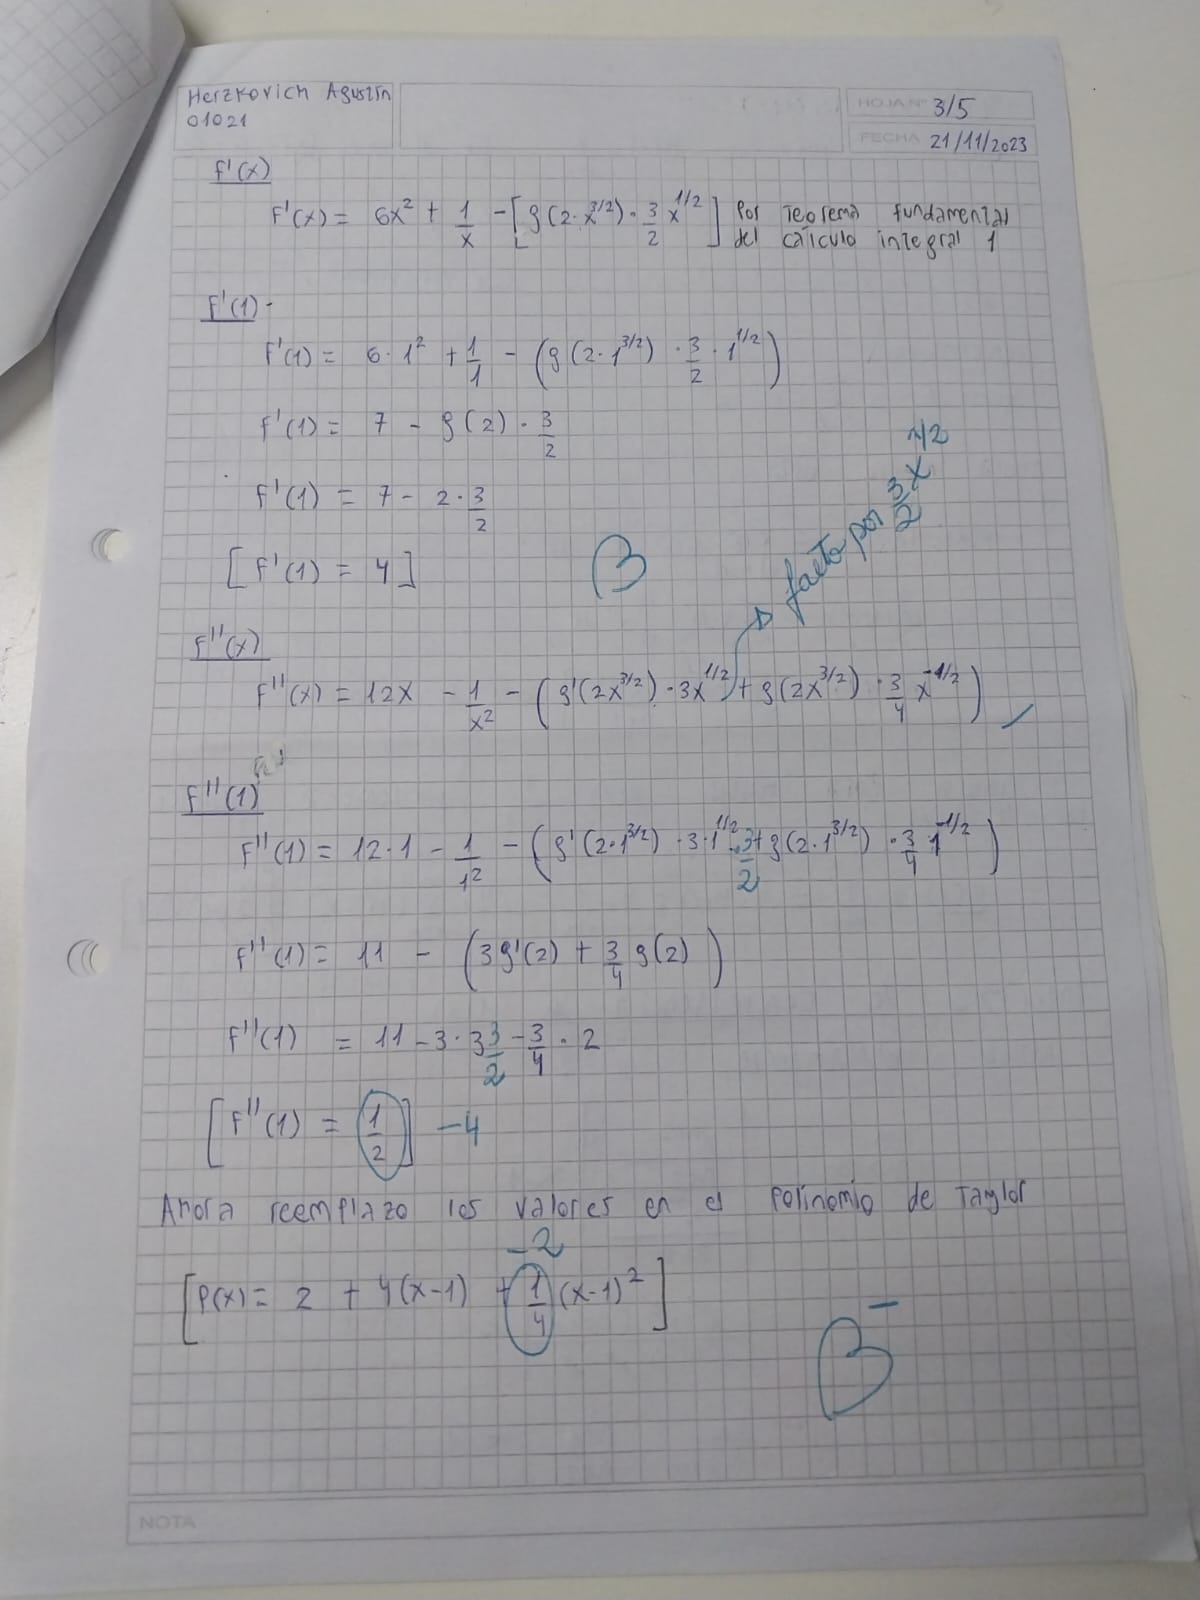 Herzkovich Agustín
01021
HOJA Nº 3/5
FECHA 21/11/2023
F'(x)
F'(x) = 6x² + 1/x - [g(2·x^3/2)·3/2 x^1/2] Por Teorema fundamental
del calculo integral 1
F'(1)
F'(1) = 6·1² + 1/1 - (g(2·1^3/2)·3/2·1^1/2)
F'(1) = 7 - g(2)·3/2
F'(1) = 7 - 2·3/2
[F'(1) = 4]
B
falta por 3/2 x^1/2
F''(x)
F''(x) = 12x - 1/x² - (g'(2x^3/2)·3x^1/2 + g(2x^3/2)·3/4 x^-1/2)
F''(1)
F''(1) = 12·1 - 1/1² - (g'(2·1^3/2)·3·1^1/2 ·3/2 + g(2·1^3/2)·3/4 1^-1/2)
F''(1) = 11 - (3g'(2) + 3/4 g(2))
F''(1) = 11 - 3·3 3/2 - 3/4·2
[F''(1) = 1/2] -4
Ahora reemplazo los valores en el polinomio de Taylor
-2
[P(x) = 2 + 4(x-1) + 1/4 (x-1)²]
B-
NOTA